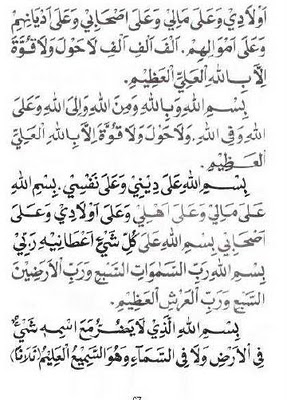 اَوْلَادِيْ وَعَلَى مَالِيْ وَعَلَى اَصْحَابِيْ وَعَلَى اَدْيَانِهِمْ
وَعَلَى اَمْوَالِهِمْ. اَلْفَ اَلْفِ اَلْفِ لَاحَوْلَ وَلَا قُوَّةَ
اِلَّا بِاللهِ الْعَلِيِّ الْعَظِيْمِ.
بِسْمِ اللهِ وَبِاللهِ وَمِنَ اللهِ وَاِلَى اللهِ وَعَلَى
اللهِ وَفِي اللهِ. وَلَاحَوْلَ وَلَا قُوَّةَ اِلَّا بِاللهِ الْعَلِيِّ
الْعَظِيْمِ.
بِسْمِ اللهِ عَلَى دِيْنِيْ وَعَلَى نَفْسِيْ. بِسْمِ اللهِ
عَلَى مَالِيْ وَعَلَى اَهْلِيْ وَعَلَى اَوْلَادِيْ وَعَلَى
اَصْحَابِيْ بِسْمِ اللهِ عَلَى كُلِّ شَيْءٍ اَعْطَانِيْهِ رَبِّيْ
بِسْمِ اللهِ رَبِّ السَّمٰوَاتِ السَّبْعِ وَرَبِّ الْاَرَضِيْنَ
السَّبْعِ وَرَبِّ الْعَرْشِ الْعَظِيْمِ.
بِسْمِ اللهِ الَّذِيْ لَا يَضُرُّ مَعَ اسْمِهِ شَيْءٌ
فِى الْاَرْضِ وَلَا فِى السَّمَآءِ وَهُوَ السَّمِيْعُ الْعَلِيْمُ (ثَلَاثًا)